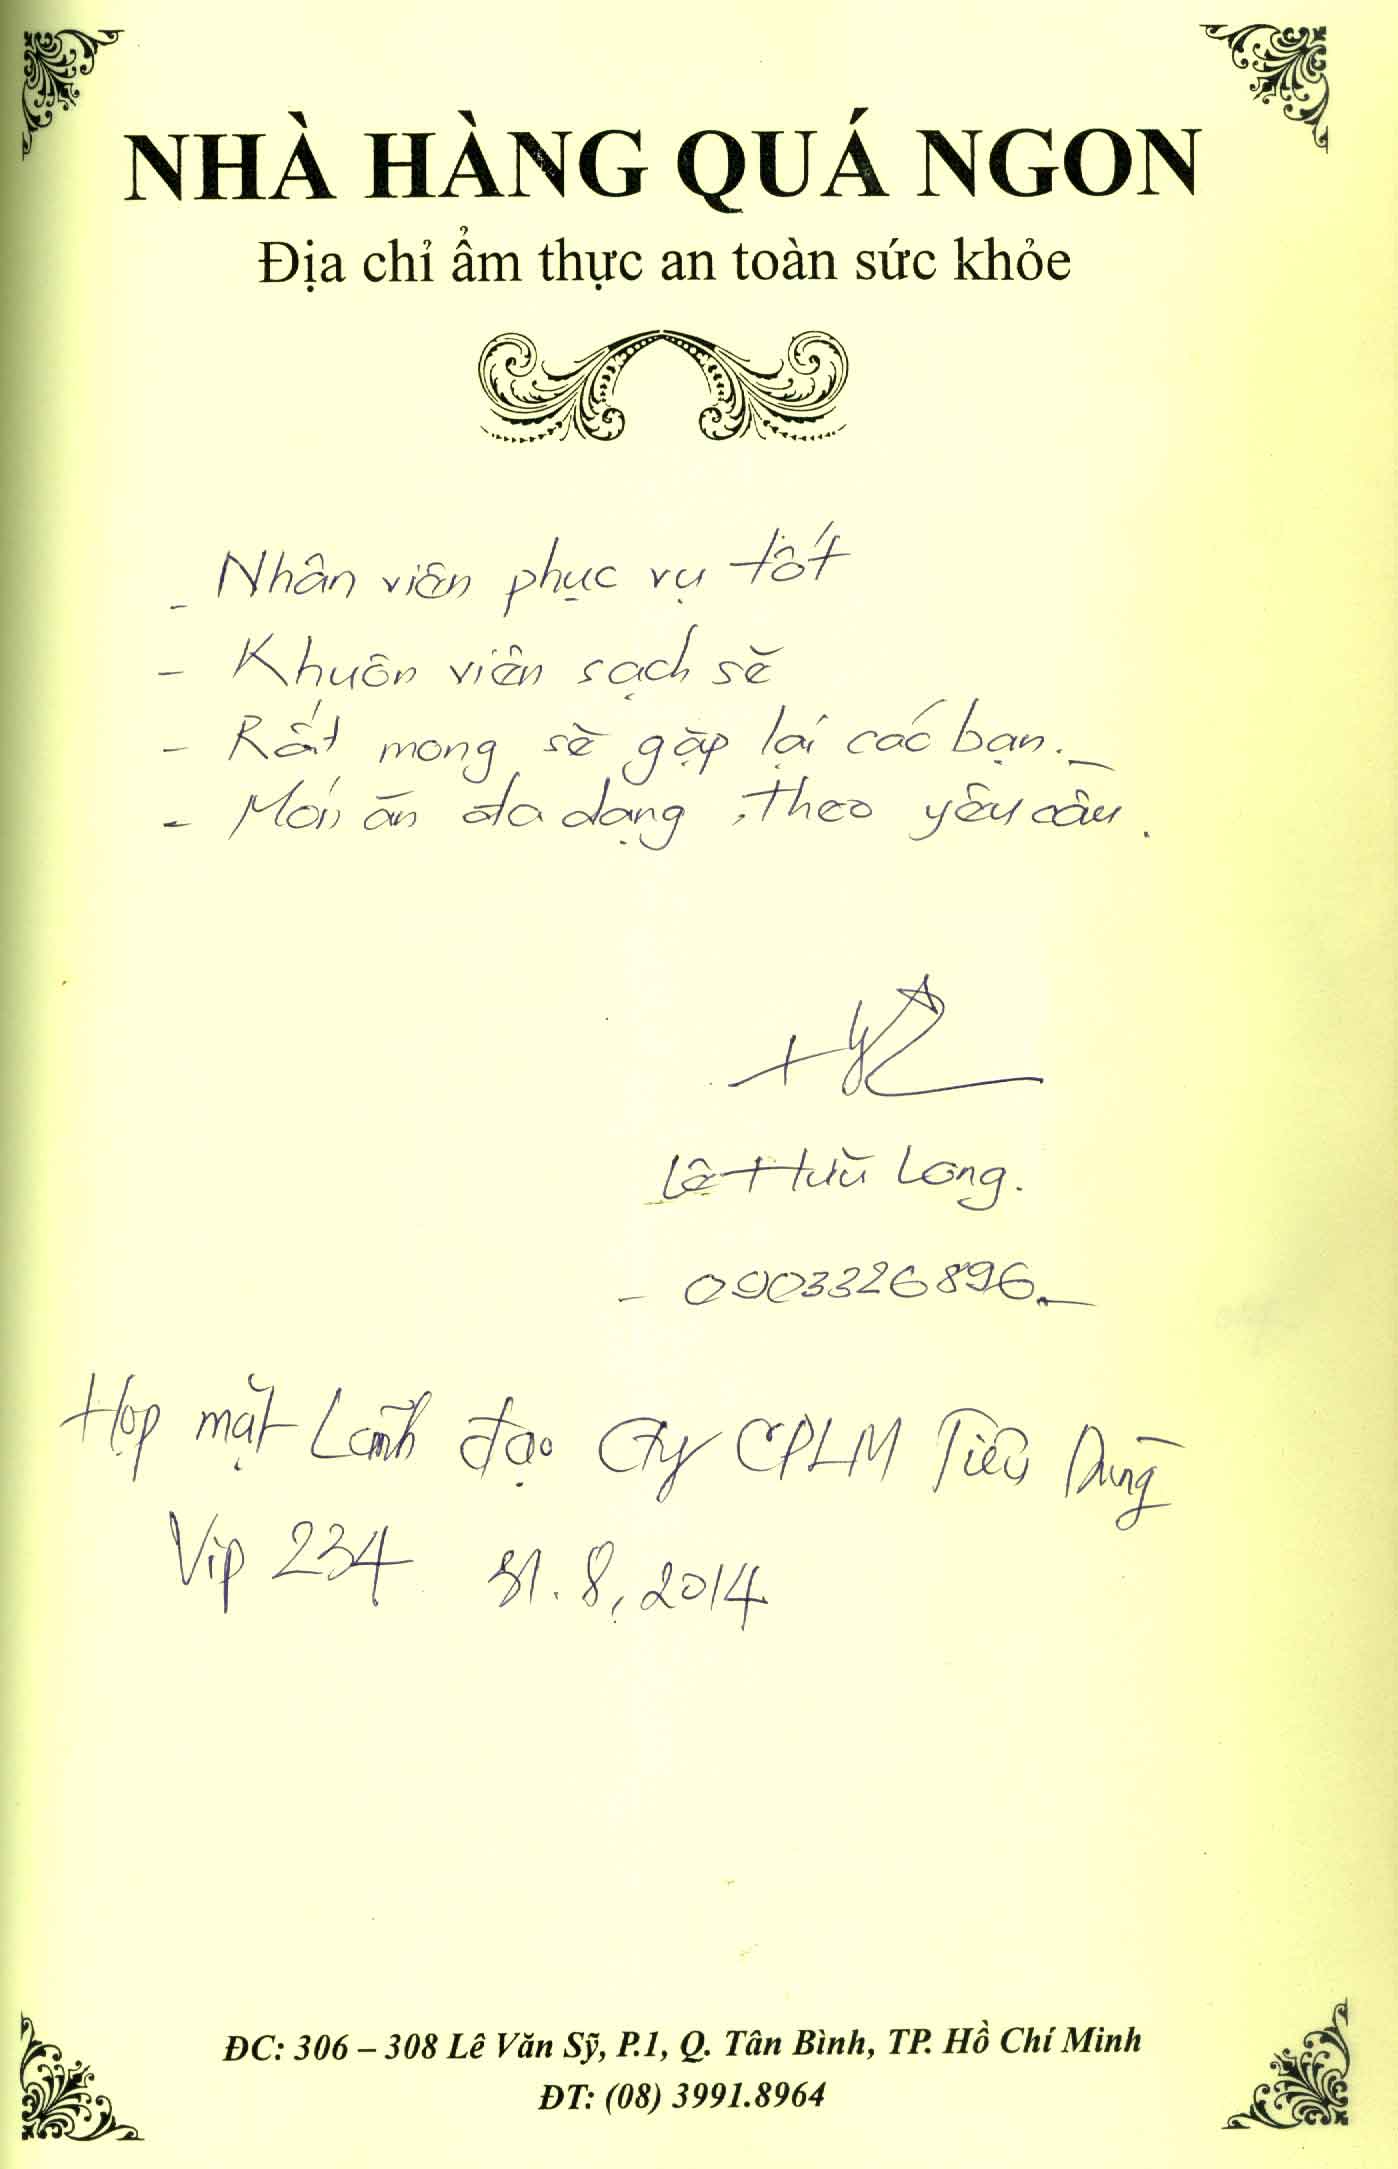 NHÀ HÀNG QUÁ NGON
Địa chỉ ẩm thực an toàn sức khỏe
- Nhân viên phục vụ tốt
- Khuôn viên sạch sẽ
- Rất mong sẽ gặp lại các bạn.
- Món ăn đa dạng, theo yêu cầu.
Lê Hữu Long.
- 0903326896.
Họp mặt Lãnh đạo Cty CPLM Tiêu Dùng
Vip 234 31.8.2014
ĐC: 306 – 308 Lê Văn Sỹ, P.1, Q. Tân Bình, TP. Hồ Chí Minh
ĐT: (08) 3991.8964